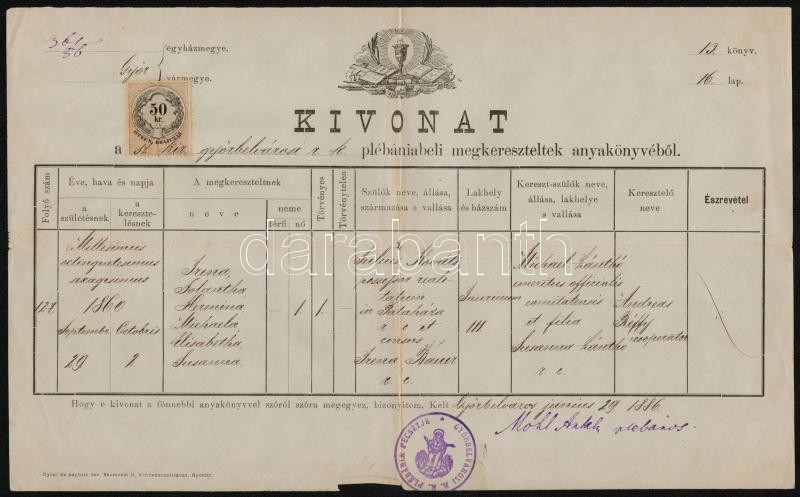 361/86
egyházmegye.
Győr
vármegye.
13. könyv.
16. lap.
50 kr.
KIVONAT
a sz. kir. győrbelvárosi r. k. plébániabeli megkereszteltek anyakönyvéből.
Folyó szám
Éve, hava és napja
a születésnek
a keresztelésnek
A megkereszteltnek
neve
neme
férfi
nő
Törvényes
Törvénytelen
Szülők neve, állása, származása s vallása
Lakhely és házszám
Kereszt-szülők neve, állása, lakhelye s vallása
Keresztelő neve
Észrevétel
127.
Millesimus
octingentesimus
sexagesimus
1860
Septembr.
Octobris
29
2.
Irena,
Iolantha,
Hermina
Michaela,
Elisabetha,
Susanna.
1.
1.
Julius Kováts
possessor realitatum
in Pataháza
r. c. et
consors
Irena Bauer
r. c.
Jaurinum
111.
Michael Zánthó
emeritus officialis
comitatensis
et filia
Susanna Zánthó
r. c.
Andreas
cooperator
darabanth
Hogy e kivonat a fönnebbi anyakönyvvel szóról szóra megegyez, bizonyítom. Kelt Győrbelváros junius 29 1886.
Mohl Antal plébános.
GYŐRBELVÁROSI R. K. PLÉBÁNIA PECSÉTJE